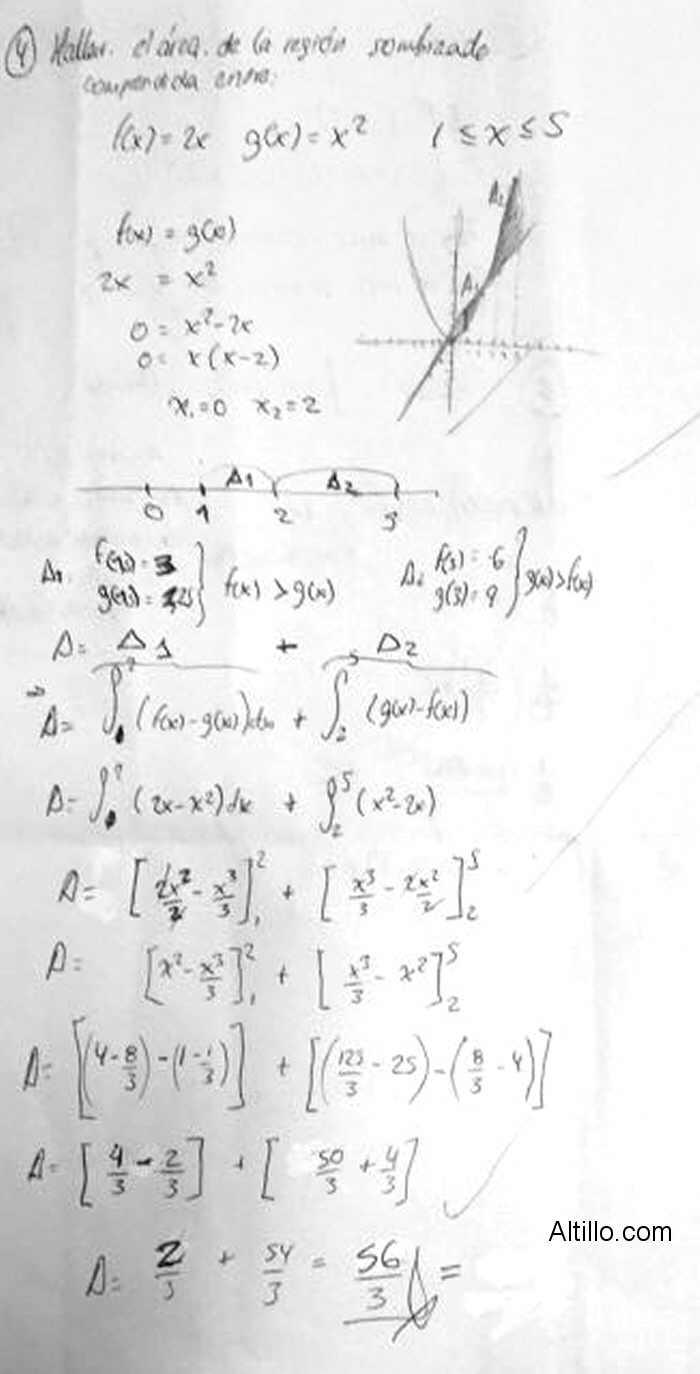 4 Hallar el área de la región sombreado
comprendida entre:
f(x) = 2x g(x) = x² 1 ≤ x ≤ 5
A2
A1
f(x) = g(x)
2x = x²
0 = x² - 2x
0 = x (x-2)
x₁=0 x₂=2
A1 A2
0 1 2 3
A1: f(x) > g(x)
A2: f(3) = 6
g(3) = 9 } g(x) > f(x)
A = A1 + A2
A = ∫ (f(x) - g(x)) dx + ∫₂⁵ (g(x) - f(x))
A = ∫ (2x - x²) dx + ∫₂⁵ (x² - 2x)
A = [2x²/2 - x³/3]₁² + [x³/3 - 2x²/2]₂⁵
A = [x² - x³/3]₁² + [x³/3 - x²]₂⁵
A = [(4 - 8/3) - (1 - 1/3)] + [(125/3 - 25) - (8/3 - 4)]
A = [4/3 - 2/3] + [50/3 + 4/3]
A = 2/3 + 54/3 = 56/3 =
Altillo.com